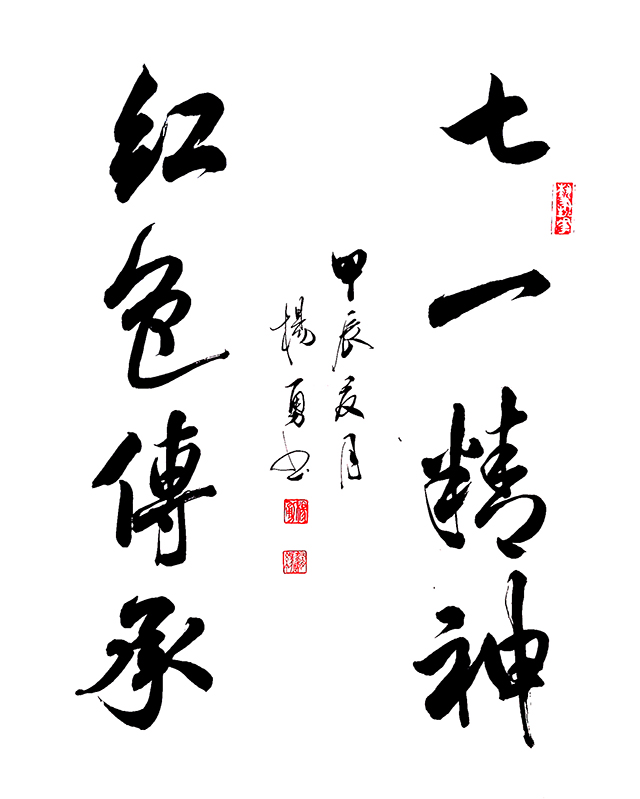 七一精神
红色傳承
甲辰夏月
楊勇书